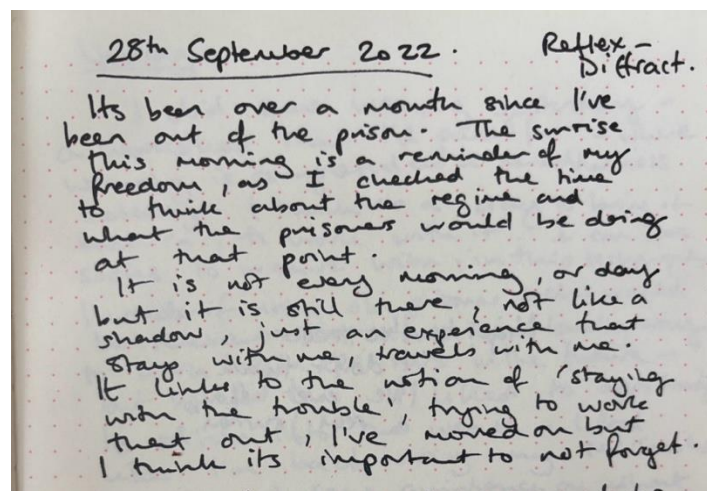 28th September 2022.
Reflex-
Diffract.
Its been over a month since I've
been out of the prison. The sunrise
this morning is a reminder of my
freedom, as I checked the time
to think about the regime and
what the prisoners would be doing
at that point.
It is not every morning, or day
but it is still there, not like a
shadow, just an experience that
stays with me, travels with me.
It links to the notion of 'staying
with the trouble', trying to work
that out, I've moved on but
I think its important to not forget.